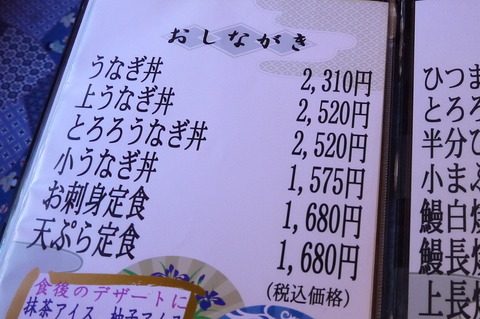 おしながき
うなぎ丼 2,310円
上うなぎ丼 2,520円
とろろうなぎ丼 2,520円
小うなぎ丼 1,575円
お刺身定食 1,680円
天ぷら定食 1,680円
(税込価格)
食後のデザートに
抹茶アイス
ひつま
とろろ
半分ひ
小まぶ
鰻白焼
鰻長焼
上長焼